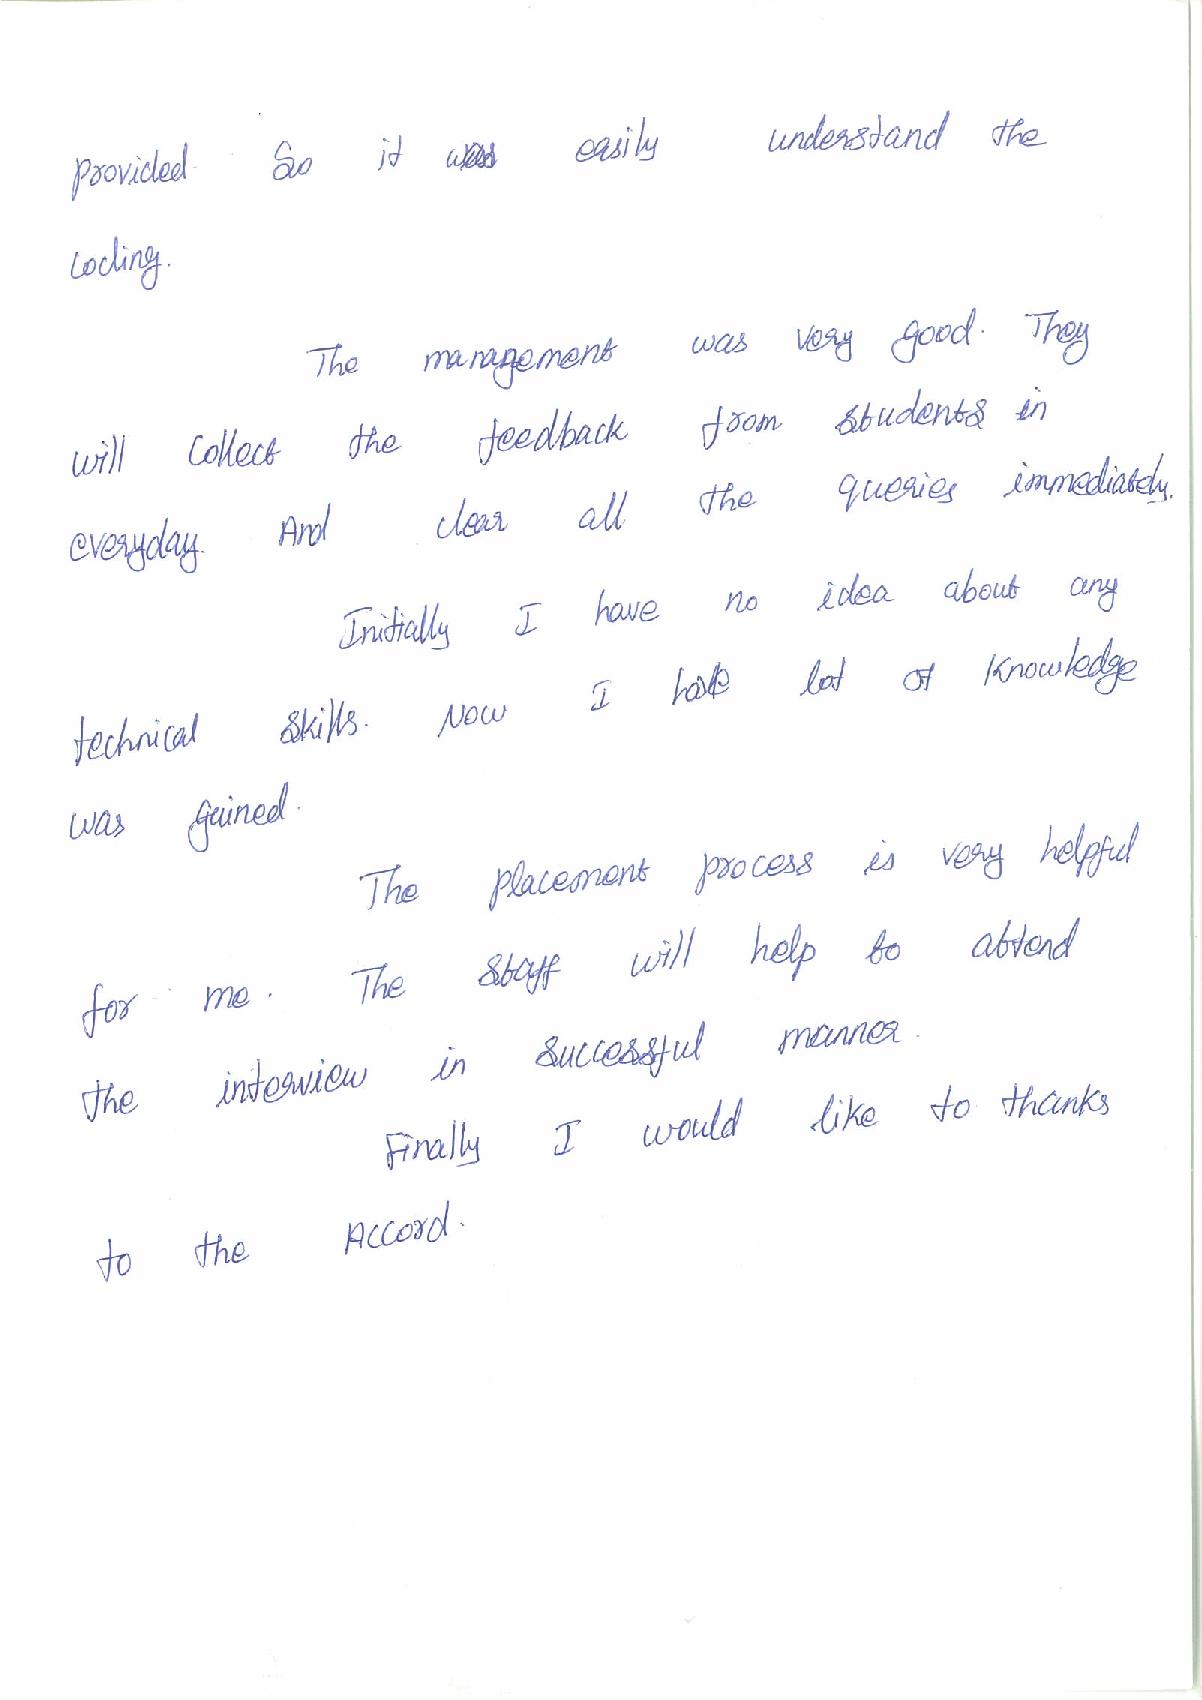 provided. So it was easily understand the
coding.
The management was very good. They
will collect the feedback from students in
everyday. And clear all the queries immediately.
Initially I have no idea about any
technical skills. Now I have lot of knowledge
was gained.
The placement process is very helpful
for me. The staff will help to attend
the interview in successful manner.
Finally I would like to thanks
to the Accord.